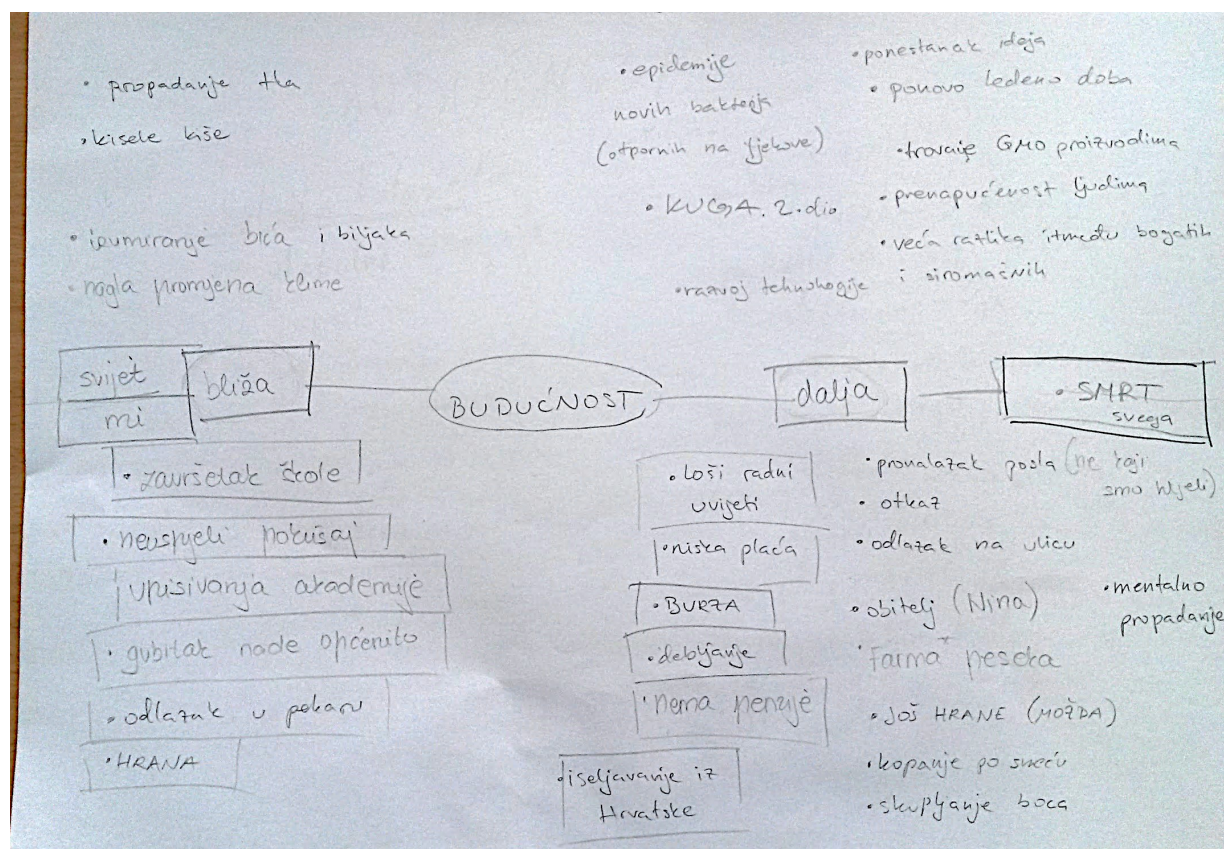 • propadanje tla
• kisele kiše
• izumiranje bića i biljaka
• nagla promjena klime
• epidemije
novih bakterija
(otpornih na lijekove)
• KUGA. 2. dio
• razvoj tehnologije
• ponestanak ideja
• ponovo ledeno doba
• trovanje GMO proizvodima
• prenapučenost ljudima
• veća razlika između bogatih
i siromašnih
svijet
mi
bliža
BUDUĆNOST
dalja
• SMRT
svega
• završetak škole
• neuspjeli pokušaj
upisivanja akademije
• gubitak nade općenito
• odlazak u pekaru
• HRANA
• loši radni
uvijeti
• niska plaća
• BURZA
• debljanje
• nema penzije
• iseljavanje iz
Hrvatske
• pronalazak posla (ne koji
smo htjeli)
• otkaz
• odlazak na ulicu
• obitelj (Nina)
• farma peseka
• JOŠ HRANE (MOŽDA)
• kopanje po smeću
• skupljanje boca
• mentalno
propadanje